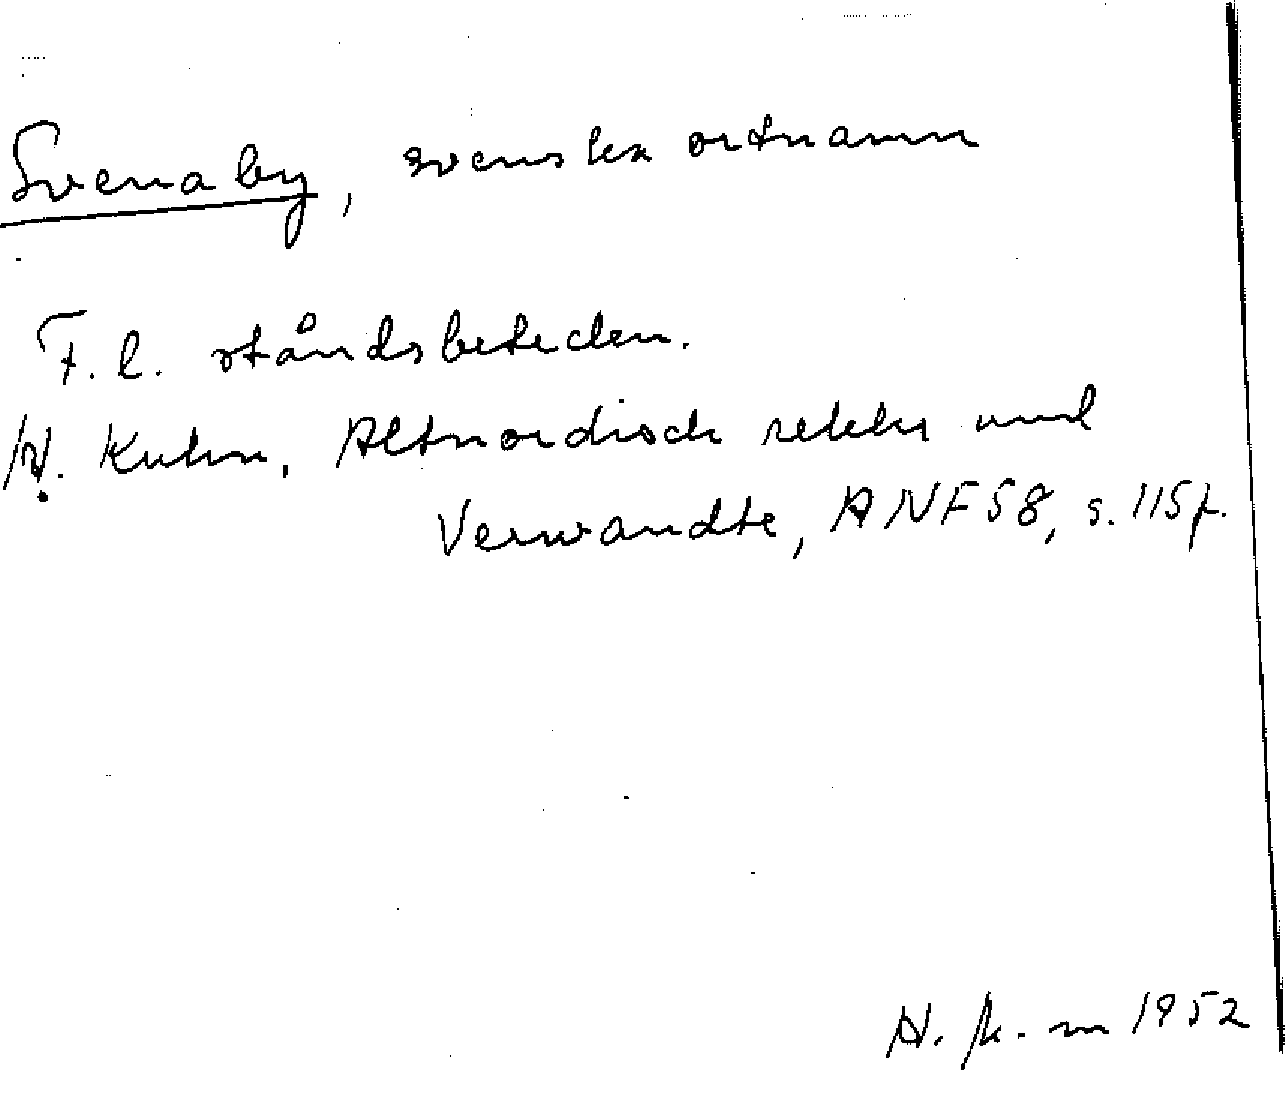 Svenaby, svenska ortnamn
F.l. ståndsbeteckn.
H. Kuhn, Altnordisch rekkr und
Verwandte, ANF 58, s. 115f.
1952